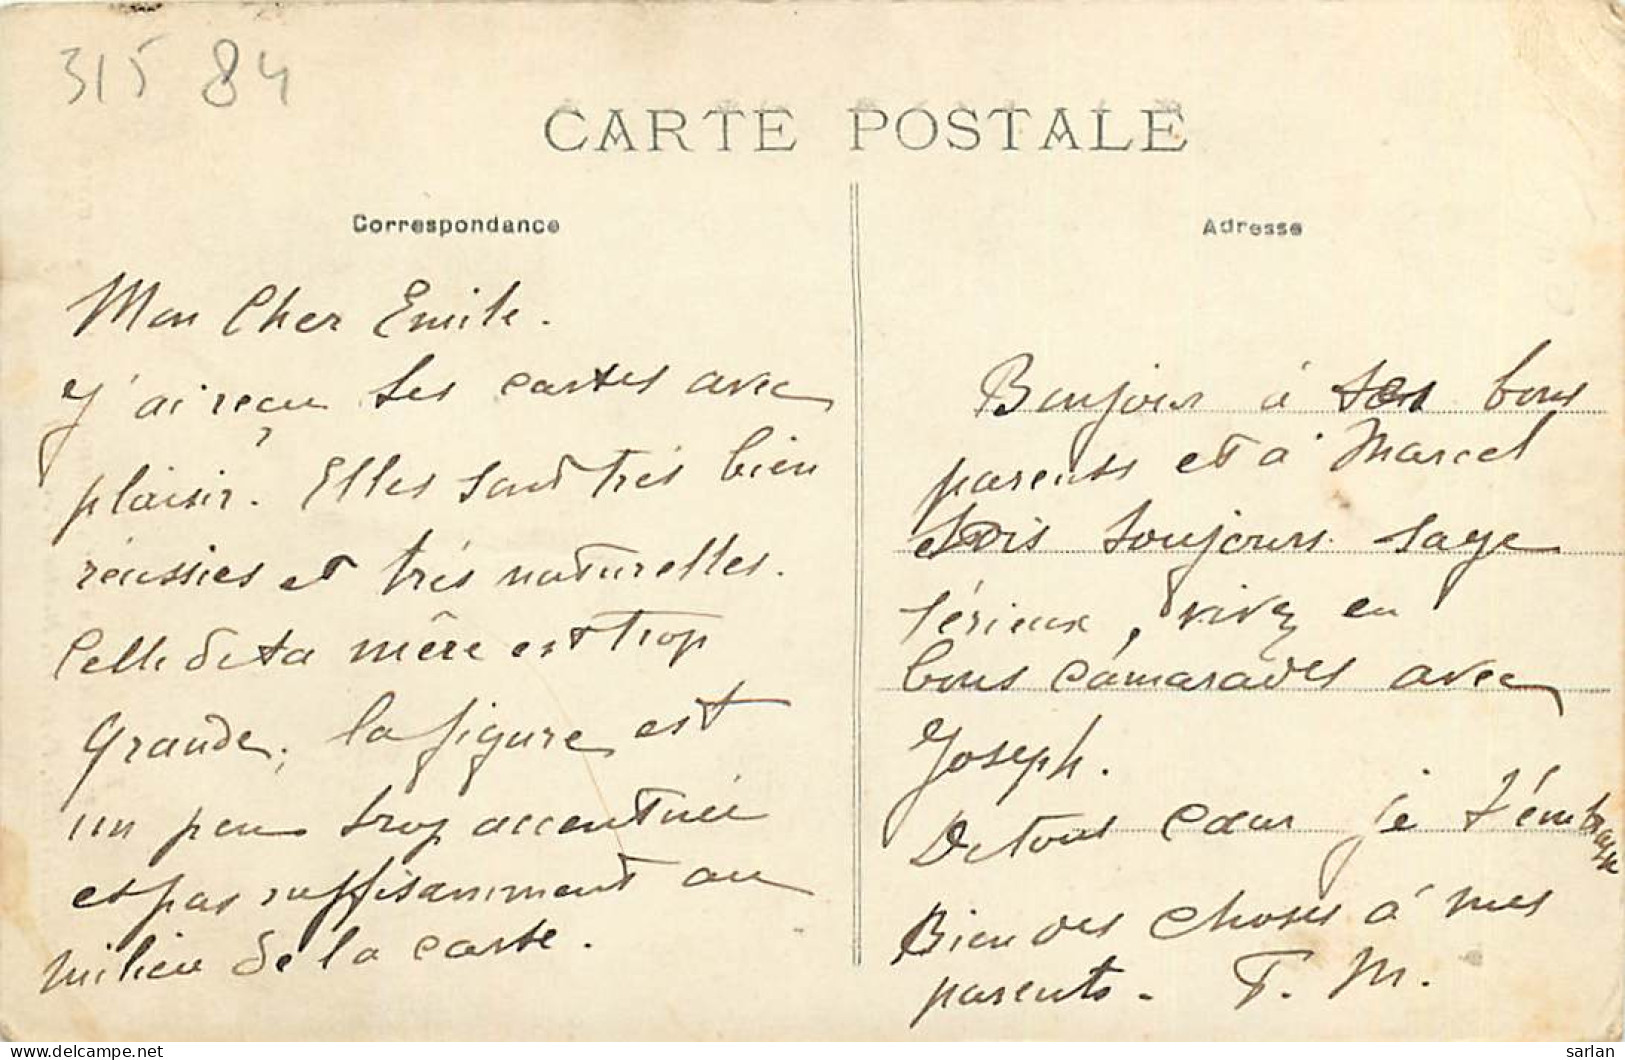 315 84
CARTE POSTALE
Correspondance
Mon Cher Emile.
J'ai reçu tes cartes avec
plaisir. Elles sont très bien
réussies et très naturelles.
Celle de ta mère est trop
grande, la figure est
un peu trop accentuée
et pas suffisamment au
milieu de la carte.
Adresse
Bonjour à tes bons
parents et à Marcel
Sois toujours sage
sérieux, vivez en
bons camarades avec
Joseph.
De tout cœur je t'embrasse
Bien des choses à mes
parents. F. M.
sarlan